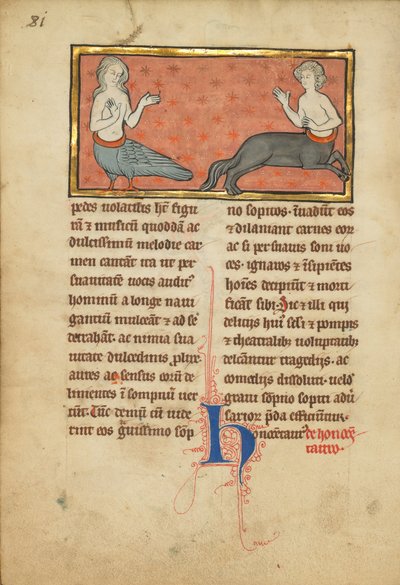 81
pedes uolatilis hñt figu
rā & musicū quoddā ac
dulcissimū melodie car
men cantāt ita ut per
suauitatē uocis auditꝰ
hominū a longe naui
gantium mulceāt & ad se
detrahāt. ac nimia sua
uitate dulcedinis
aures ac sensus eorū de
linientes ī sompniū uer
tūt. Tūc demū cū uide
rint eos gͣuissimo sop
no sopitos. inuadūt eos
& dilaniant carnes eoꝝ
ac si persuasis soni uo
cis. ignaros & īsipiētes
hoīes decipiūt & morti
ficāt sibi. Sic & illi qui
deliciis huiꝰ scl̄i & pompis
& theatralibꝰ uoluptatibꝰ
delectātur tragediis. ac
comediis dissoluti. uelđ
graui sopnio sopiti adū
sarioꝝ p̄da efficiuntur.
Honocentaurꝰ de honocen
tauro